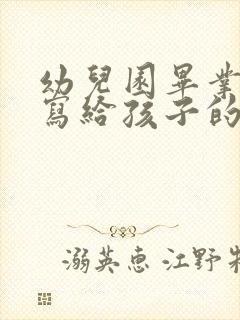 幼兒園畢業
寫給孩子的
溺英惠 江野牧